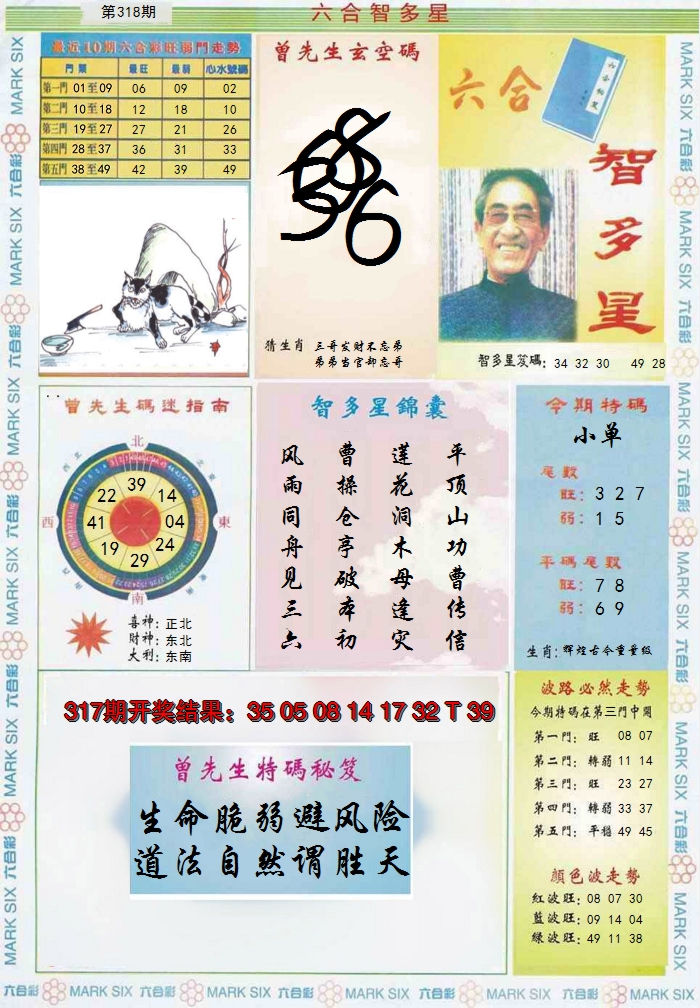 第318期
六合智多星
最近10期六合彩旺弱門走勢
門類 最旺 最弱 心水號碼
第一門 01至09 06 09 02
第二門 10至18 12 18 10
第三門 19至27 27 21 26
第四門 28至37 36 31 33
第五門 38至49 42 39 49
曾先生玄空碼
猜生肖 三哥发财不忘弟
弟弟当官却忘哥
六合
六合秘笈
智多星
智多星笈碼: 34 32 30 49 28
曾先生碼迷指南
北
西 東
南
39
22 14
41 04
19 24
29
喜神: 正北
財神: 东北
大利: 东南
智多星錦囊
平顶山功曹传信
莲花洞木母逢灾
曹操仓亭破本初
风雨同舟见三六
今期特碼
小单
尾數
旺: 3 2 7
弱: 1 5
平碼尾數
旺: 7 8
弱: 6 9
生肖: 辉煌古今重量级
317期开奖结果: 35 05 08 14 17 32 T 39
曾先生特碼秘笈
生命脆弱避风险
道法自然谓胜天
波路必然走勢
今期特碼在第三門中開
第一門: 旺 08 07
第二門: 轉弱 11 14
第三門: 旺 23 27
第四門: 轉弱 33 37
第五門: 平穩 49 45
顏色波走勢
紅波旺: 08 07 30
藍波旺: 09 14 04
綠波旺: 49 11 38
MARK SIX 六合彩